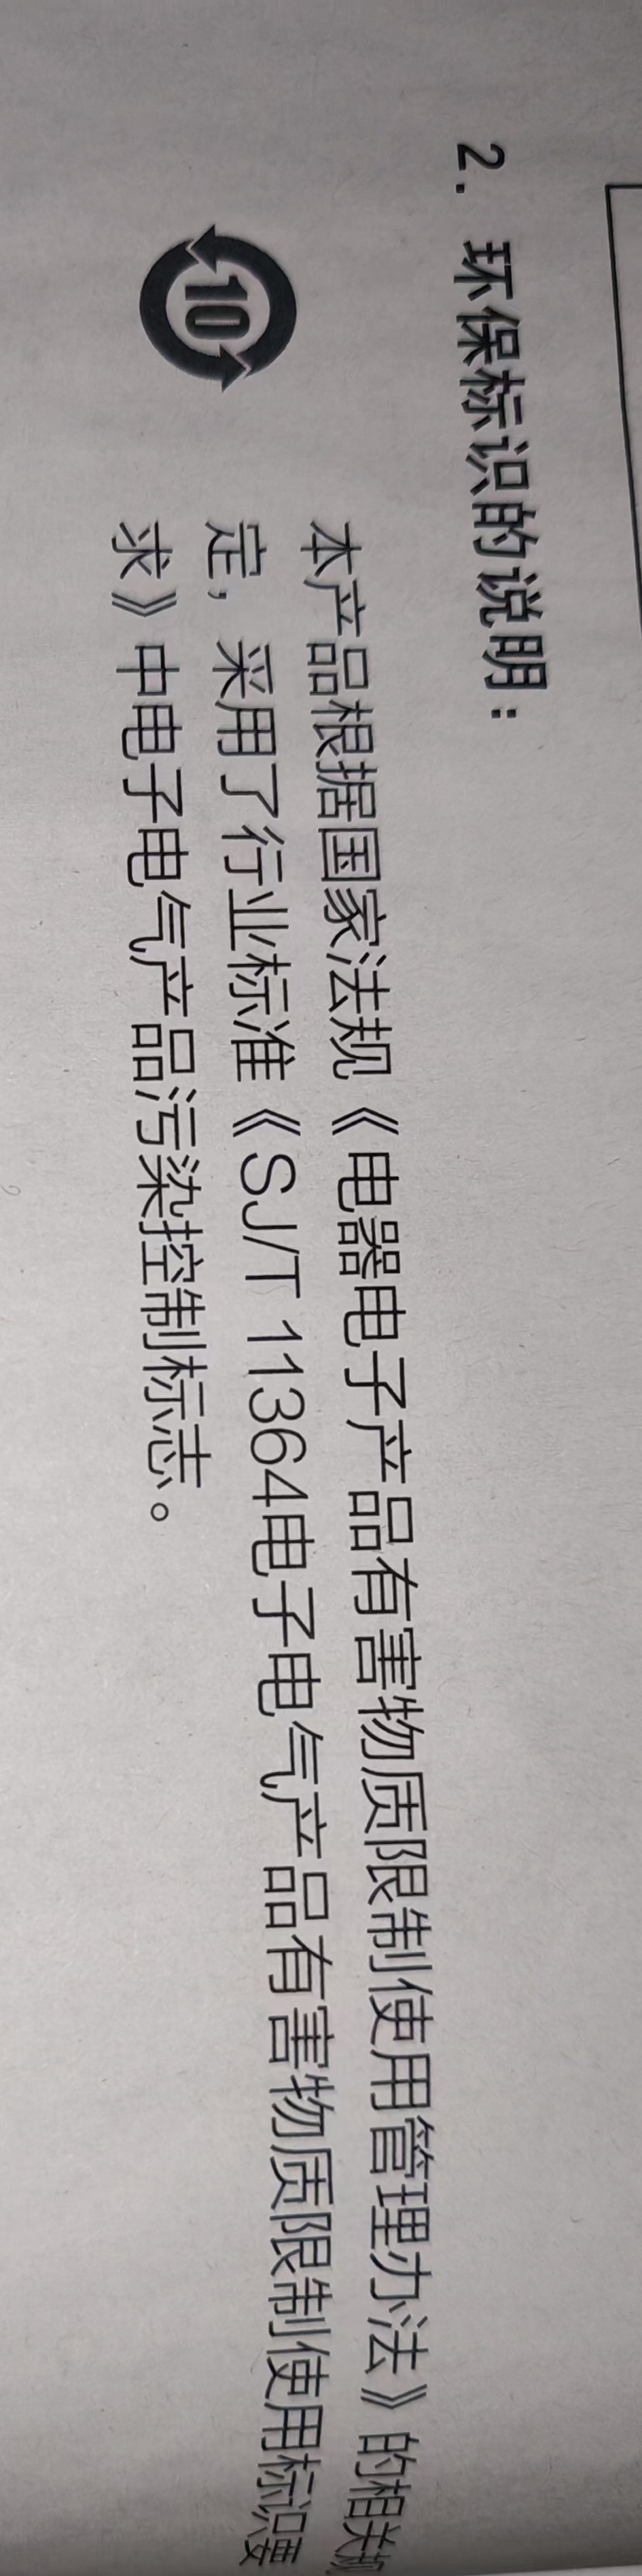 2. 环保标识的说明：
10
本产品根据国家法规《电器电子产品有害物质限制使用管理办法》的相关规
定，采用了行业标准《SJ/T 11364电子电气产品有害物质限制使用标识要
求》中电子电气产品污染控制标志。